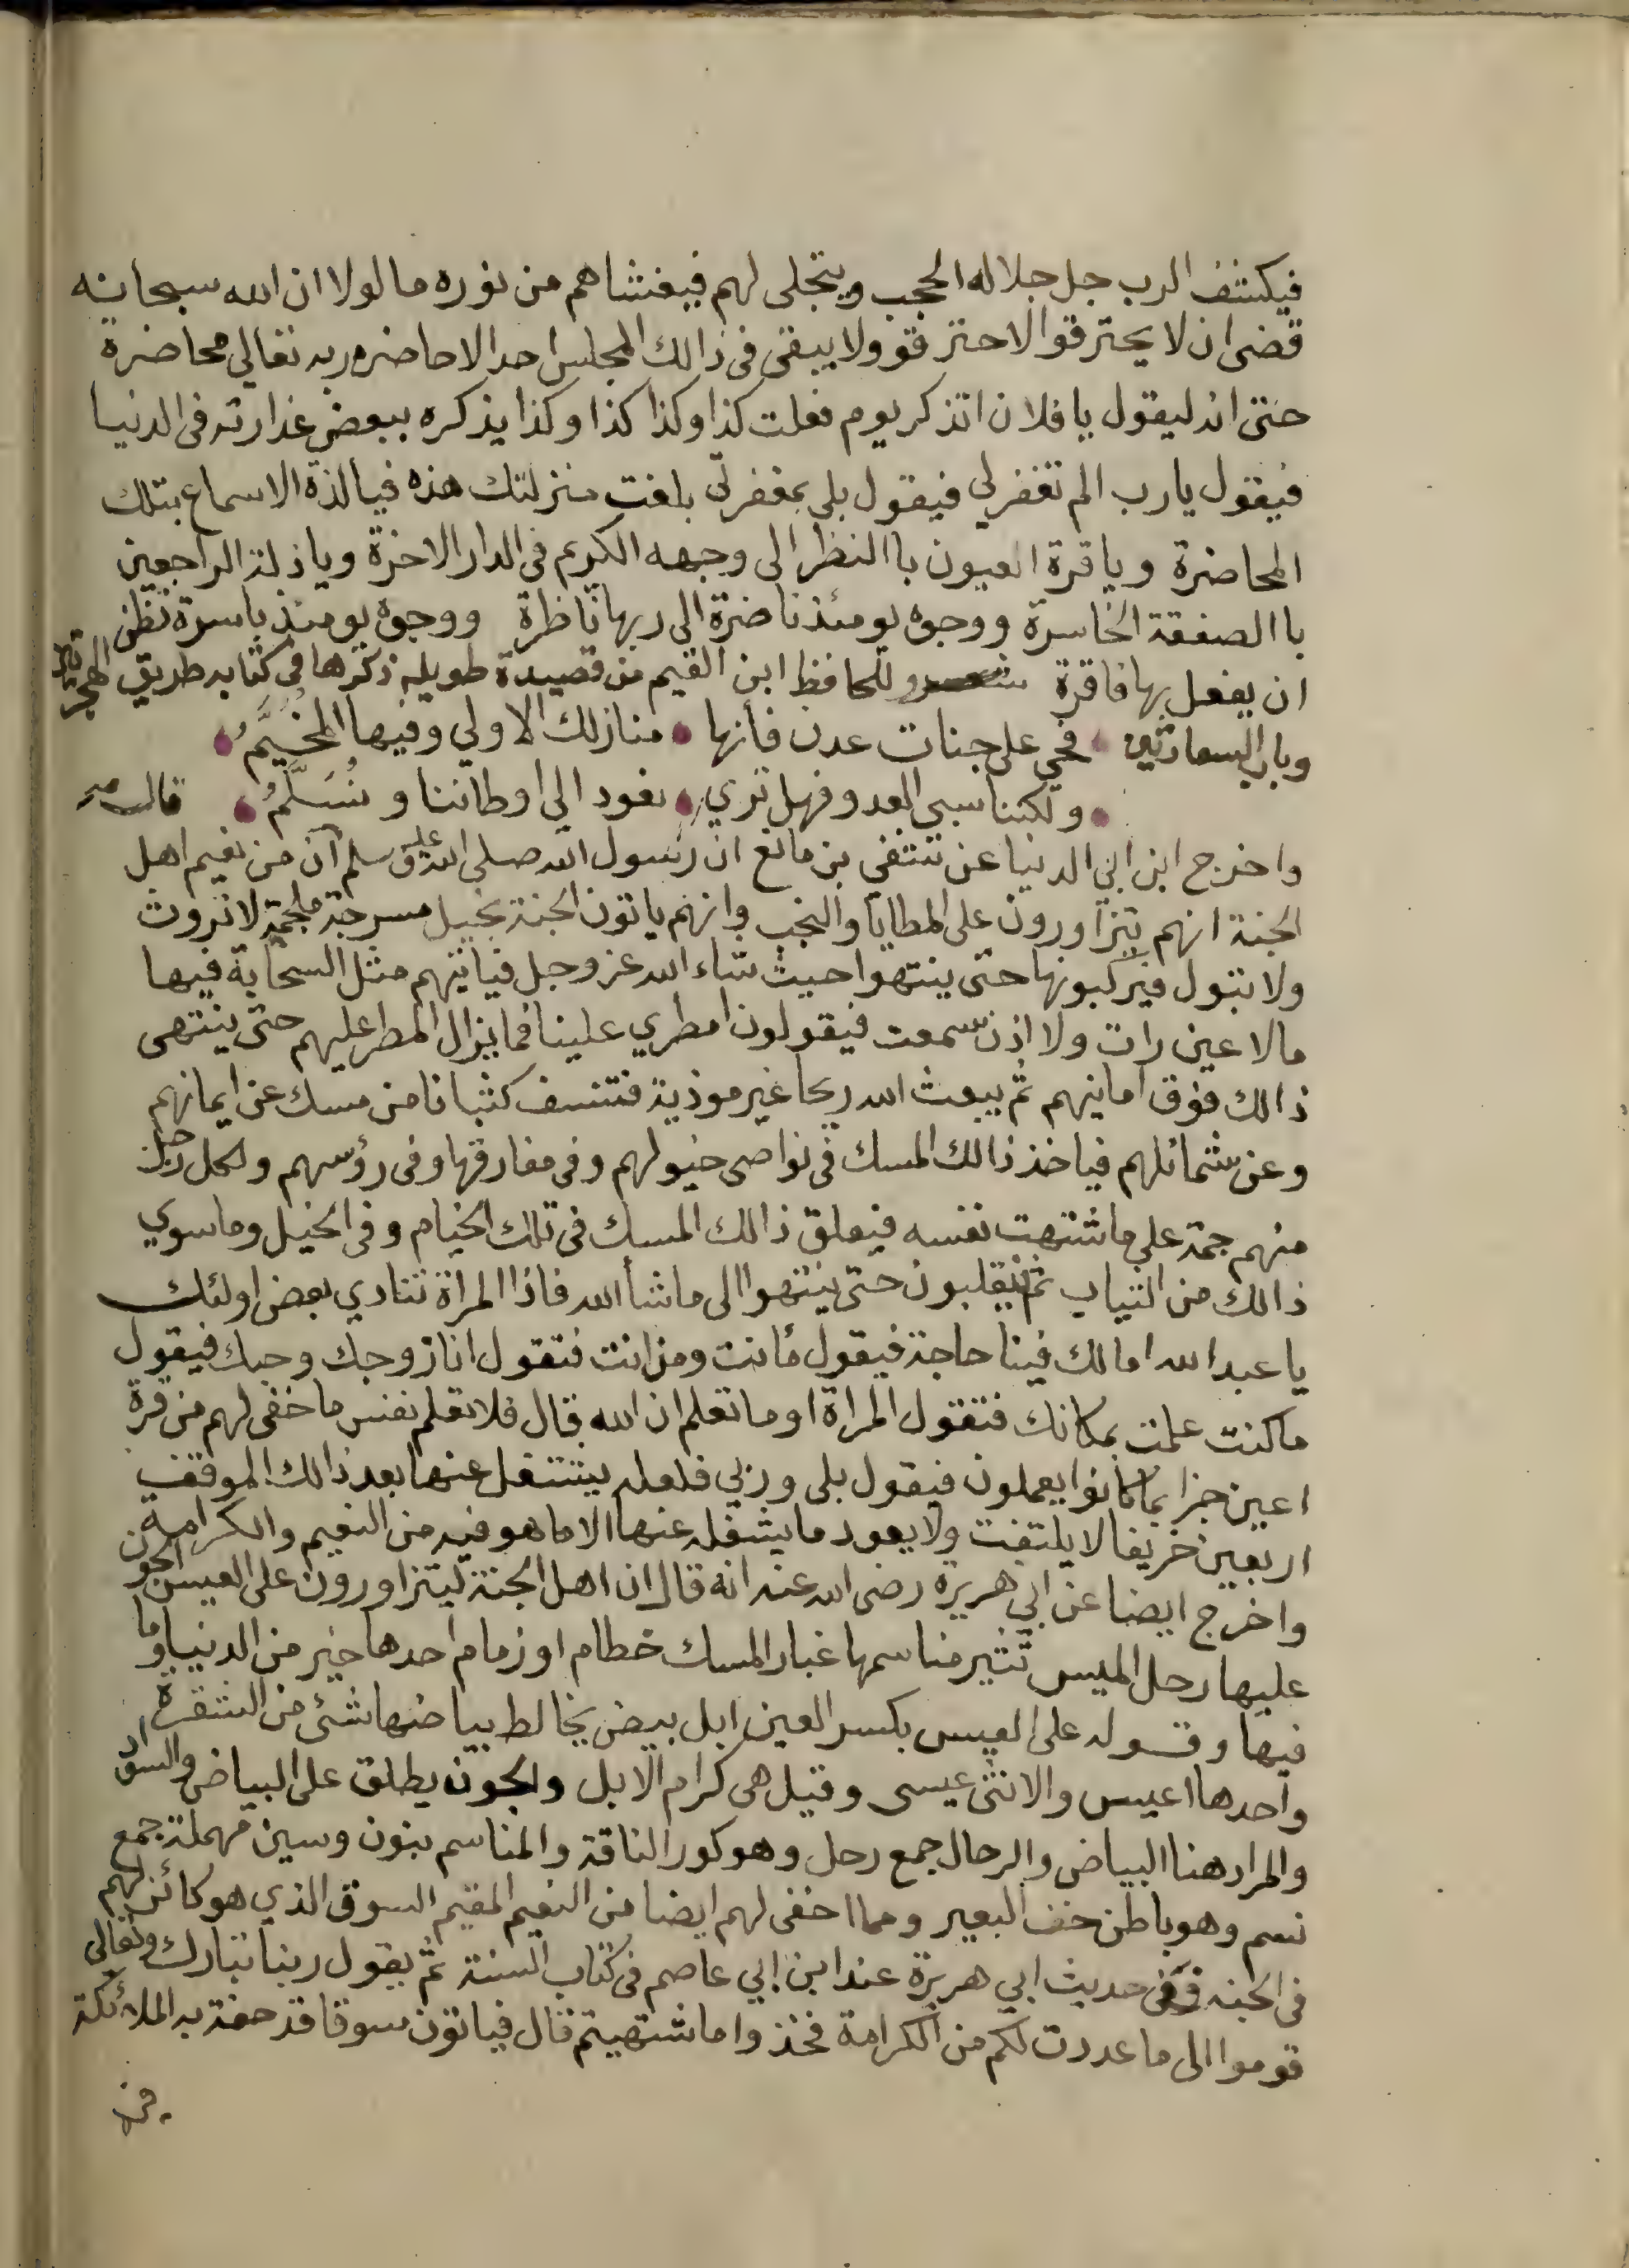 فيكشف الرب جل جلاله الحجب ويتجلى لهم فيغشاهم من نوره ما لولا ان الله سبحانه
قضى ان لا يحترقوا لاحترقو ولا يبقى فى ذالك المجلس احد الا حاضره ربه تعالي محاضرة
حتى انه ليقول يا فلان اتذكر يوم فعلت كذا وكذا كذا وكذا يذكره ببعض غدارته فى الدنيا
فيقول يا رب الم تغفر لي فيقول بلى بمغفرتي بلغت منزلتك هذه فيا لذة الاسماع بتلك
المحاضرة ويا قرة العيون با النظر الى وجهه الكريم فى الدار الاخرة ويا ذلة الراجعين
با الصفقة الخاسرة ووجوه يومئذ ناضرة الي ربها ناظرة ووجوه يومئذ باسرة تظن
ان يفعل بها فاقرة وللحافظ ابن القيم من قصيدة طويله ذكرها فى كتابه طريق الهجرتين
وباب السعادتين فحي على جنات عدن فانها منازلك الاولي وفيها المخيَّمُ
ولكننا سبي العدو فهل تري نعود الي اوطاننا ونُسَلَّمُ قال
واخرج ابن ابي الدنيا عن شفي بن ماتع ان رسول الله صلى الله عليه وسلم ان من نعيم اهل
الجنة انهم يتزاورون على المطايا والنجب وانهم ياتون الجنة بخيل مسرجة ملجمة لا تروث
ولا تبول فيركبونها حتى ينتهوا حيث شاء الله عز وجل فياتيهم مثل السحابة فيها
ما لا عين رات ولا اذن سمعت فيقولون امطري علينا فما يزال المطر عليهم حتى ينتهى
ذالك فوق امانيهم ثم يبعث الله ريحا غير موذية فتنسف كثبانا من مسك عن ايمانهم
وعن شمائلهم فياخذ ذالك المسك فى نواصى خيولهم وفى مفارقها وفى رؤسهم ولكل رجل
منهم جمة علي ما شتهت نفسه فيعلق ذالك المسك فى تلك الخيام وفى الخيل وما سوي
ذالك من الثياب ثم ينقلبون حتى ينتهوا الى ما شأ الله فاذا المراة تنادي بعض اولئك
يا عبد الله اما لك فينا حاجة فيقول ما نت ومن انت فتقول انا زوجك وحبك فيقول
ما كنت علمت بمكانك فتقول المراة او ما تعلم ان الله قال فلا تعلم نفس ما خفى لهم من قرة
اعين جزا بما كانوا يعملون فيقول بلى وربي فلعله يشتغل عنها بعد ذالك الموقف
اربعين خريفا لا يلتفت ولا يعود ما يشغله عنها الا ما هو فيه من النعيم والكرامة
واخرج ايضا عن ابي هريرة رضى الله عنه انه قال ان اهل الجنة ليتزاورون على العيس الجون
عليها رحل الميس تثير مناسمها غبار المسك خطام او زمام احدها خير من الدنيا وما
فيها وقوله على العيس بكسر العين ابل بيض يخالط بياضها شئ من الشقرة
واحدها اعيس والانثى عيسى وقيل هى كرام الابل والجون يطلق على البياض والسواد
والمراد هنا البياض والرحال جمع رحل وهو كور الناقة والمناسم بنون وسين مهملة جمع
نسم وهو باطن خف البعير ومما اخفى لهم ايضا من النعيم المقيم السوق الذي هو كائن لهم
فى الجنه ففى حديث ابي هريرة عند ابن ابي عاصم فى كتاب السنة ثم يقول ربنا تبارك وتعالى
قوموا الى ما عددت لكم من الكرامة فخذوا ما شتهيتم قال فياتون سوقا قد حفة به الملائكة